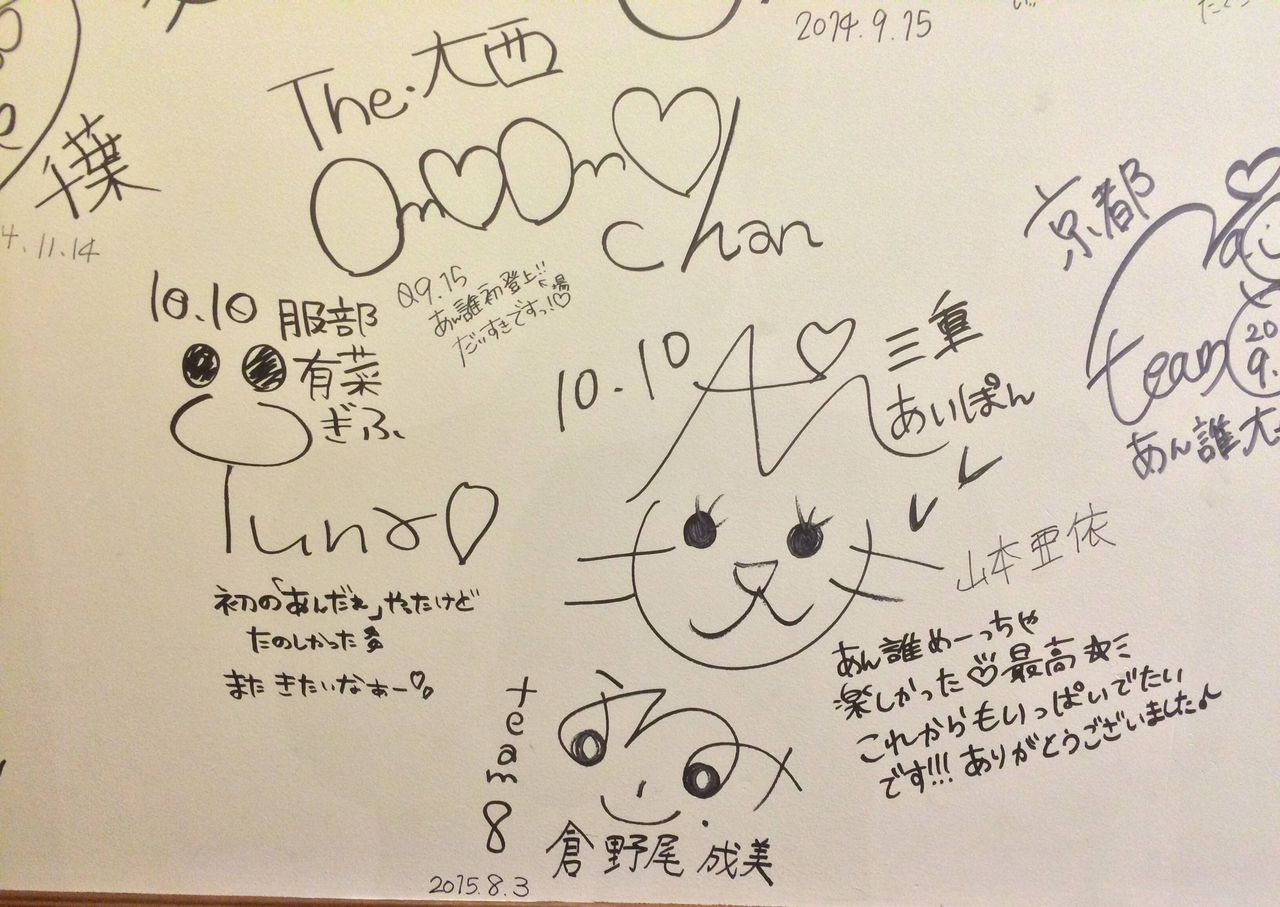 2014.9.15
The・大西
OmOm chan
千葉
4.11.14
Q9.15
あん誰初登場!!
だいすきですっ!♡
10.10
服部
有菜
ぎふ
Tuna♡
初の「あんだれ」やったけど
たのしかった
また きたいなぁー♡
10.10
三重
あいぽん
山本亜依
あん誰めーっちゃ
楽しかった♡最高☆ミ
これからもいっぱいでたい
です!!! ありがとうございました♪
京都
team
20
9.
あん誰大
team 8
なるみ
倉野尾 成美
2015.8.3